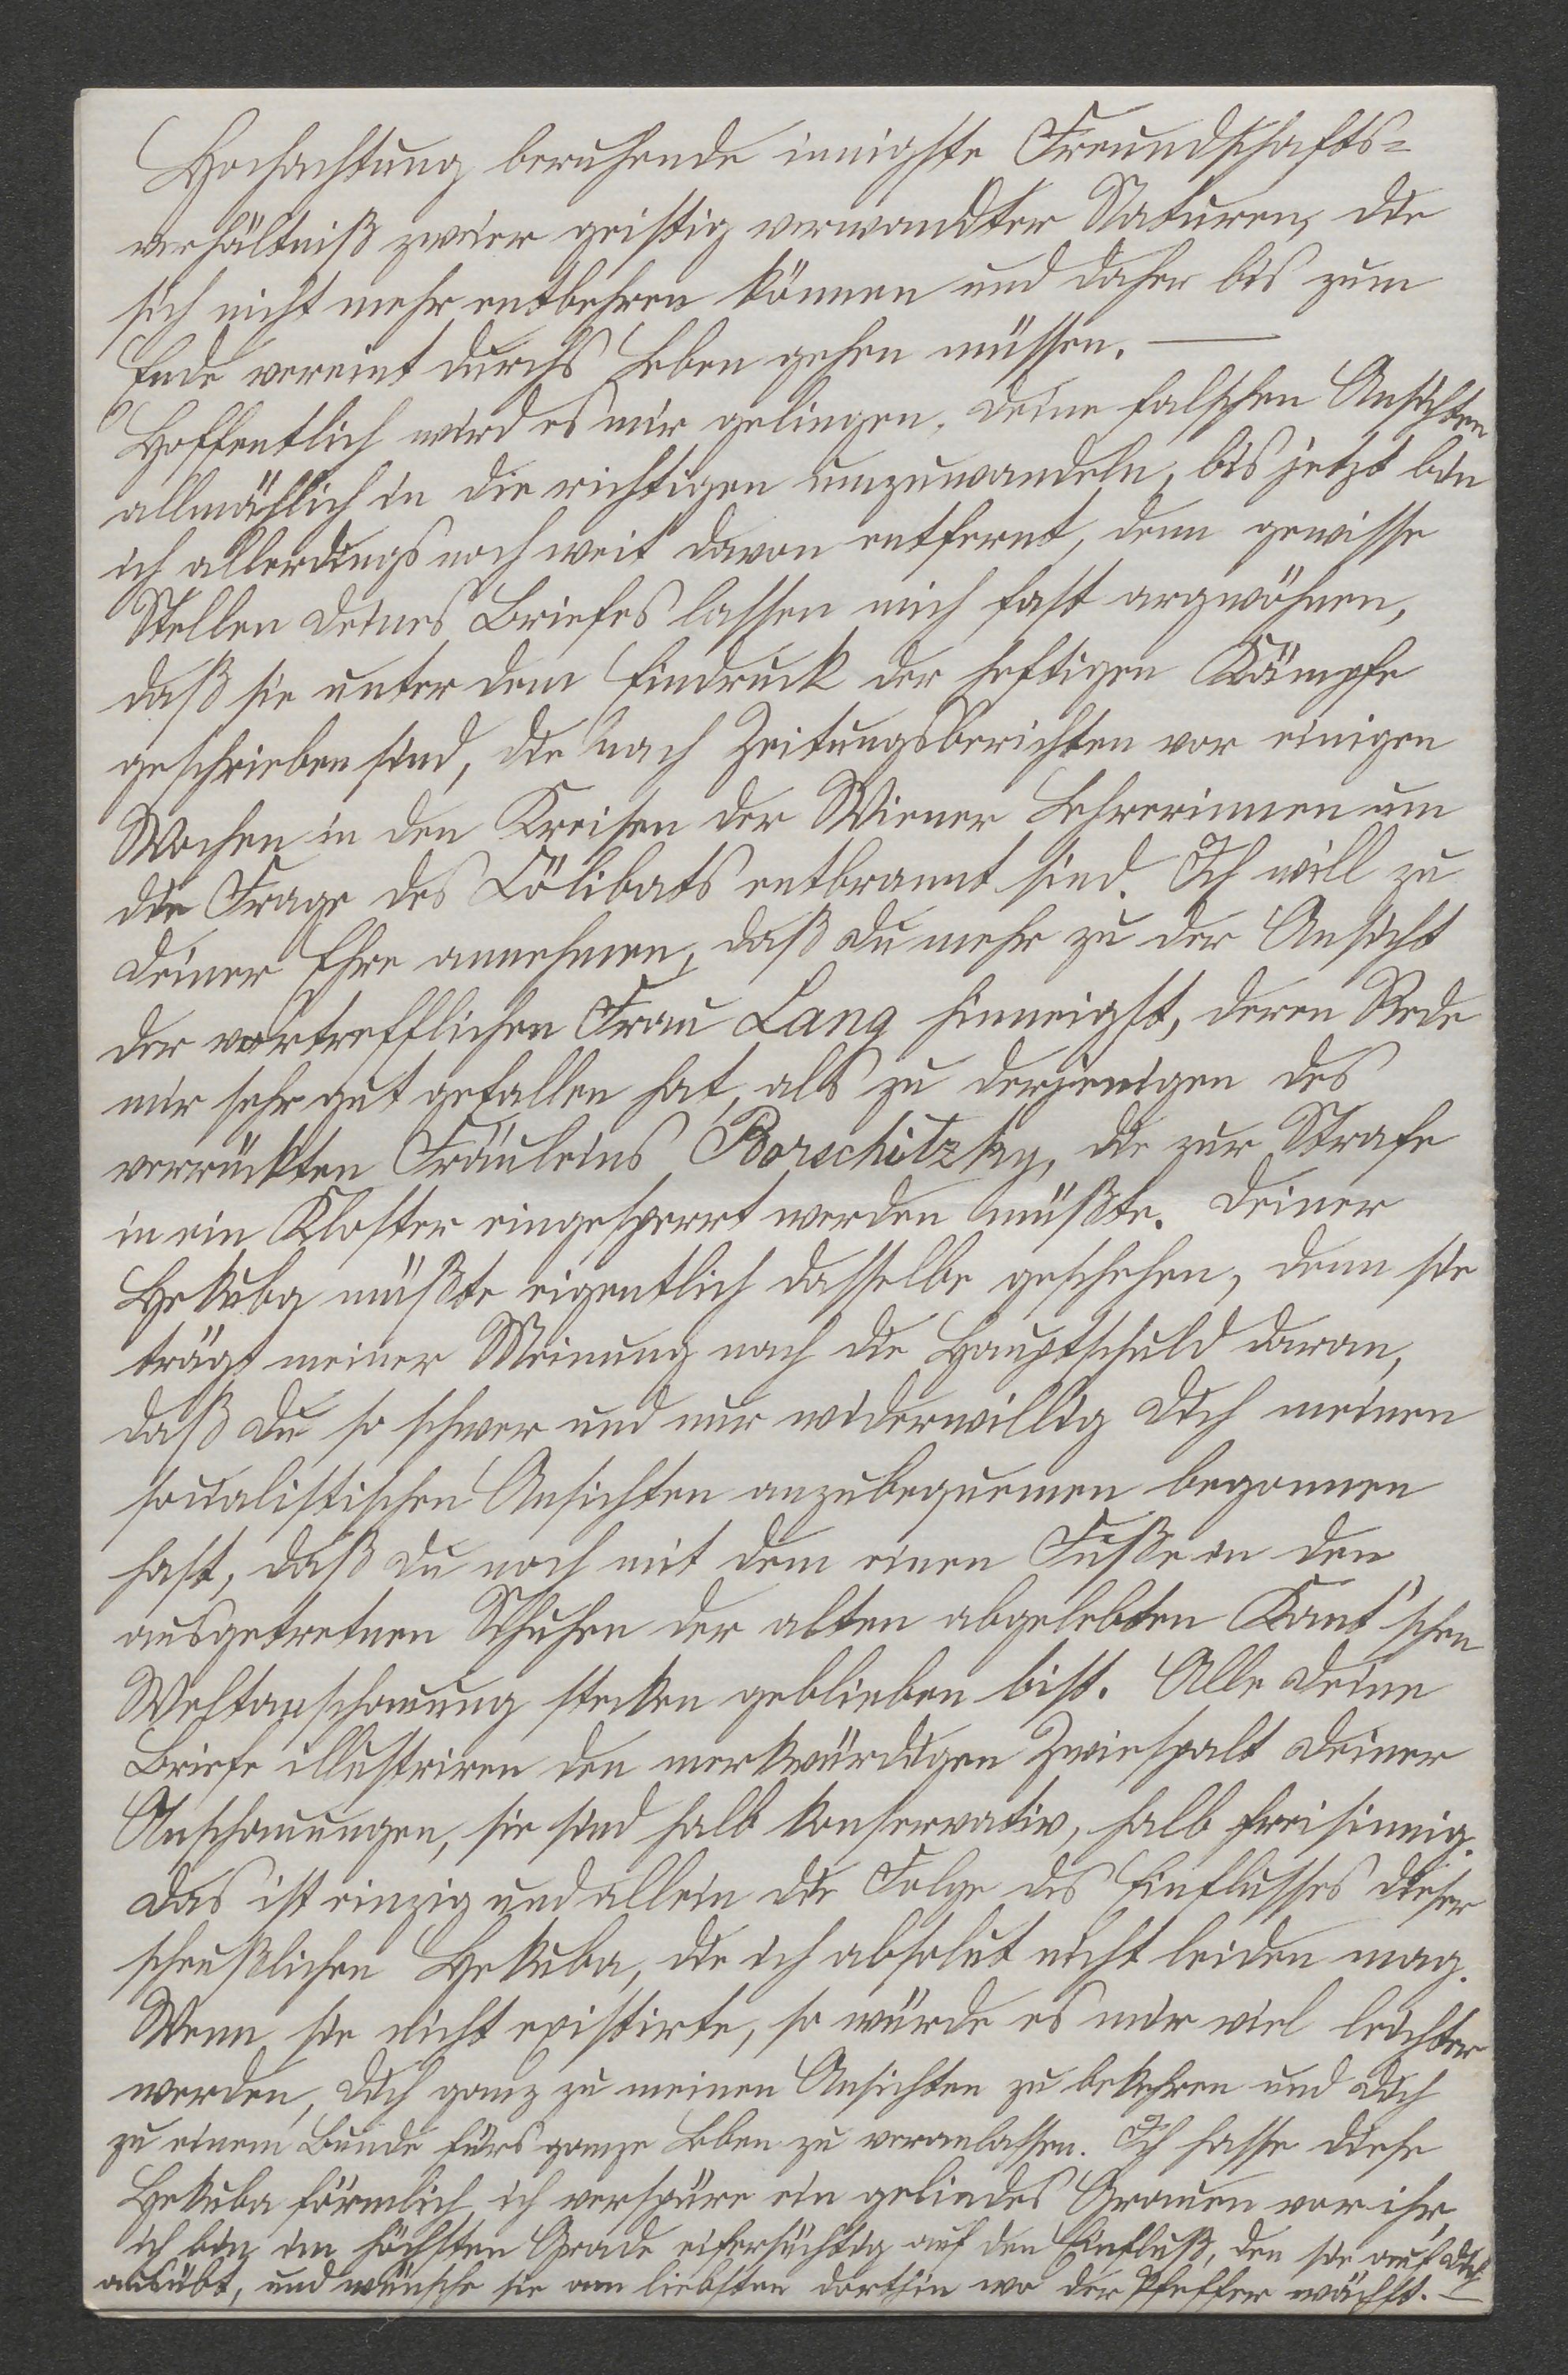 Hochachtung beruhende innigste Freundschafts-
verhältniß zweier geistig verwandter Naturen, die
sich nicht mehr entbehren können und daher bis zum
Ende vereint durchs Leben gehen müssen. —
Hoffentlich wird es mir gelingen, Deine falschen Ansichten
allmählich in die richtigen umzuwandeln, bis jetzt bin
ich allerdings noch weit davon entfernt, denn gewisse
Stellen Deines Briefes lassen mich fast argwöhnen,
daß sie unter dem Eindruck der heftigen Kämpfe
geschrieben sind, die nach Zeitungsberichten vor einigen
Wochen in den Kreisen der Wiener Lehrerinnen um
die Frage des Cölibats entbrannt sind. Ich will zu
Deiner Ehre annehmen, daß Du mehr zu der Ansicht
der vortrefflichen Frau Lang hinneigst, deren Rede
mir sehr gut gefallen hat, als zu derjenigen des
verrückten Fräuleins Borschitzky, die zur Strafe
in ein Kloster eingesperrt werden müßte. Deiner
Hekuba müßte eigentlich dasselbe geschehen, denn sie
trägt meiner Meinung nach die Hauptschuld daran,
daß Du so schwer und nur widerwillig Dich meinen
socialistischen Ansichten anzubequemen begonnen
hast, daß Du noch mit dem einen Fuße in den
ausgetretnen Schuhen der alten abgelebten Kant'schen
Weltanschauung stecken geblieben bist. Alle Deine
Briefe illustriren den merkwürdigen Zwiespalt Deiner
Anschauungen, sie sind halb konservativ, halb freisinnig.
Das ist einzig und allein die Folge des Einflusses dieser
scheußlichen Hekuba, die ich absolut nicht leiden mag.
Wenn sie nicht existirte, so würde es mir viel leichter
werden, Dich ganz zu meinen Ansichten zu bekehren und Dich
zu einem Bunde fürs ganze Leben zu veranlassen. Ich hasse diese
Hekuba förmlich, ich verspüre ein gelindes Grauen vor ihr,
ich bin im höchsten Grade eifersüchtig auf den Einfluß, den sie auf Dich
ausübt, und wünsche sie am liebsten dorthin wo der Pfeffer wächst. —